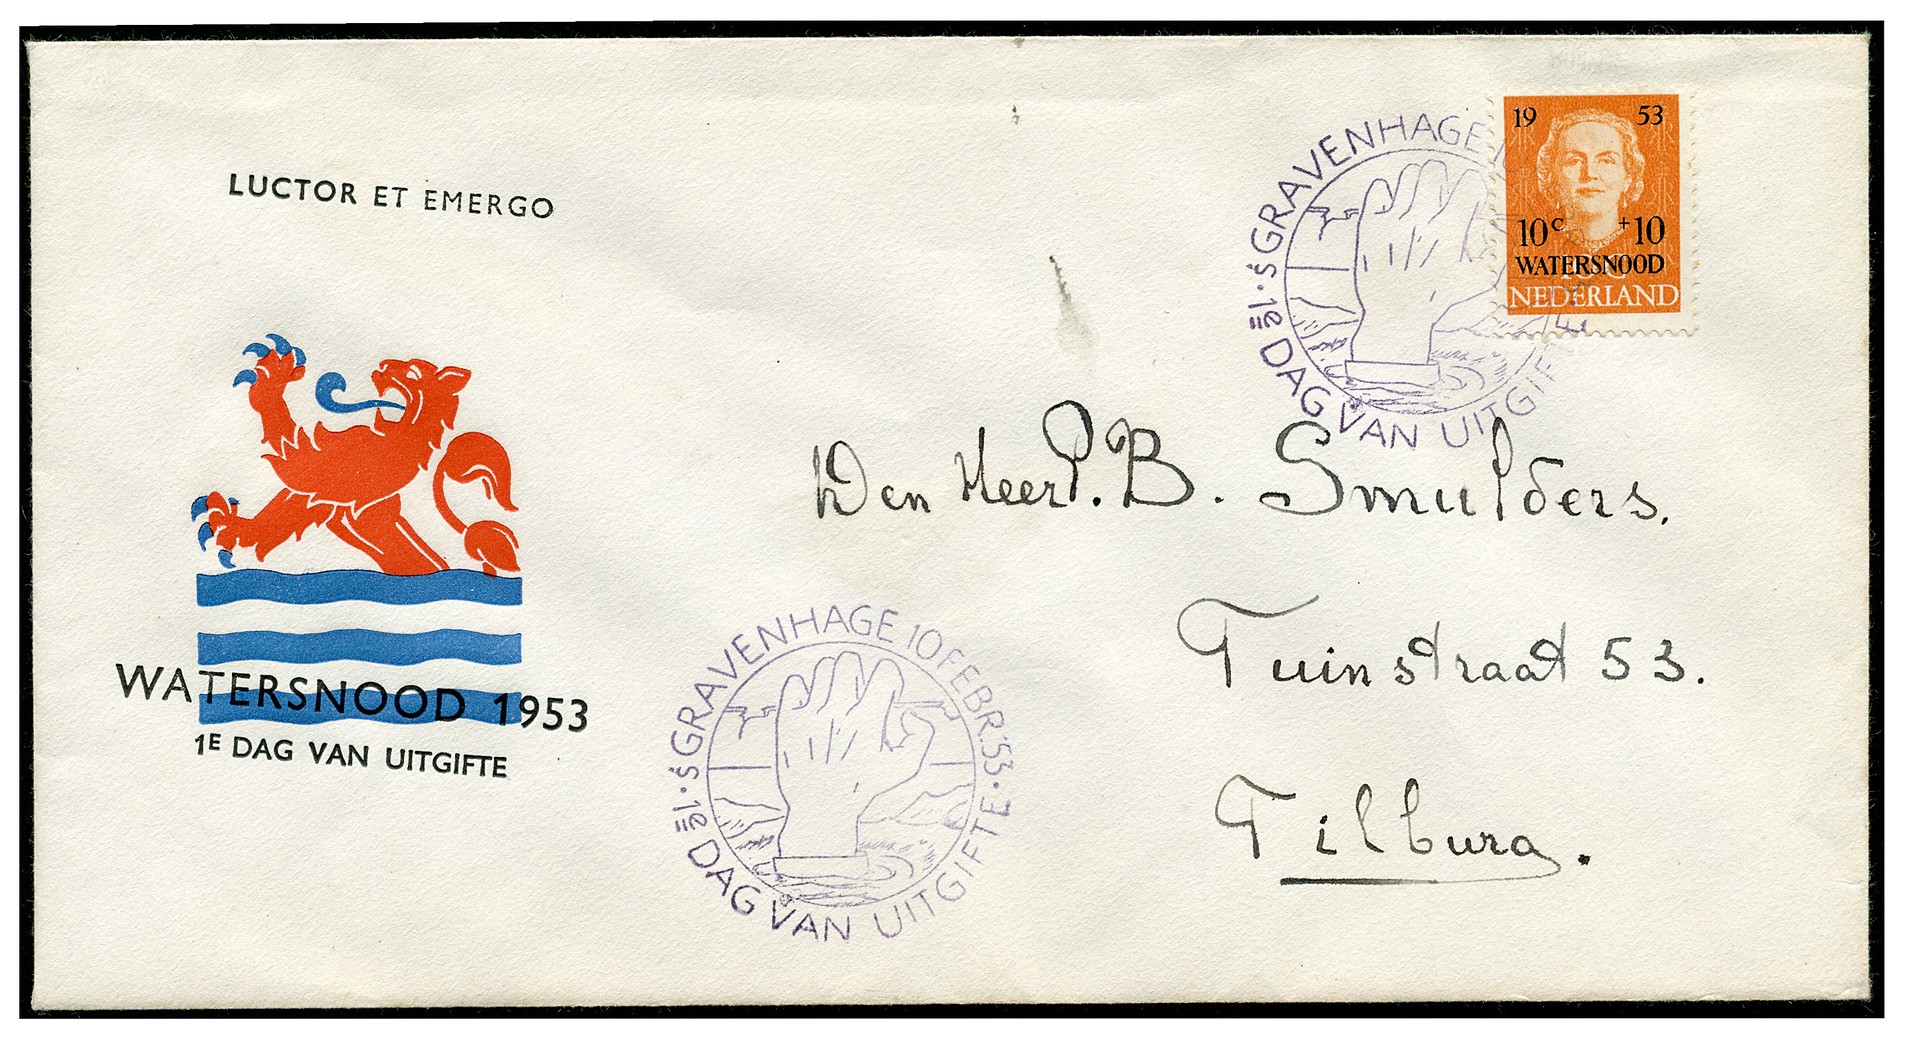 LUCTOR ET EMERGO
WATERSNOOD 1953
1E DAG VAN UITGIFTE
'S GRAVENHAGE 10 FEBR. '53 · 1E DAG VAN UITGIFTE ·
'S GRAVENHAGE 1
· 1E DAG VAN UITGIFTE
19 53
10c +10
WATERSNOOD
10C
NEDERLAND
Den Heer P. B. Smulders.
Tuinstraat 53.
Tilburg.